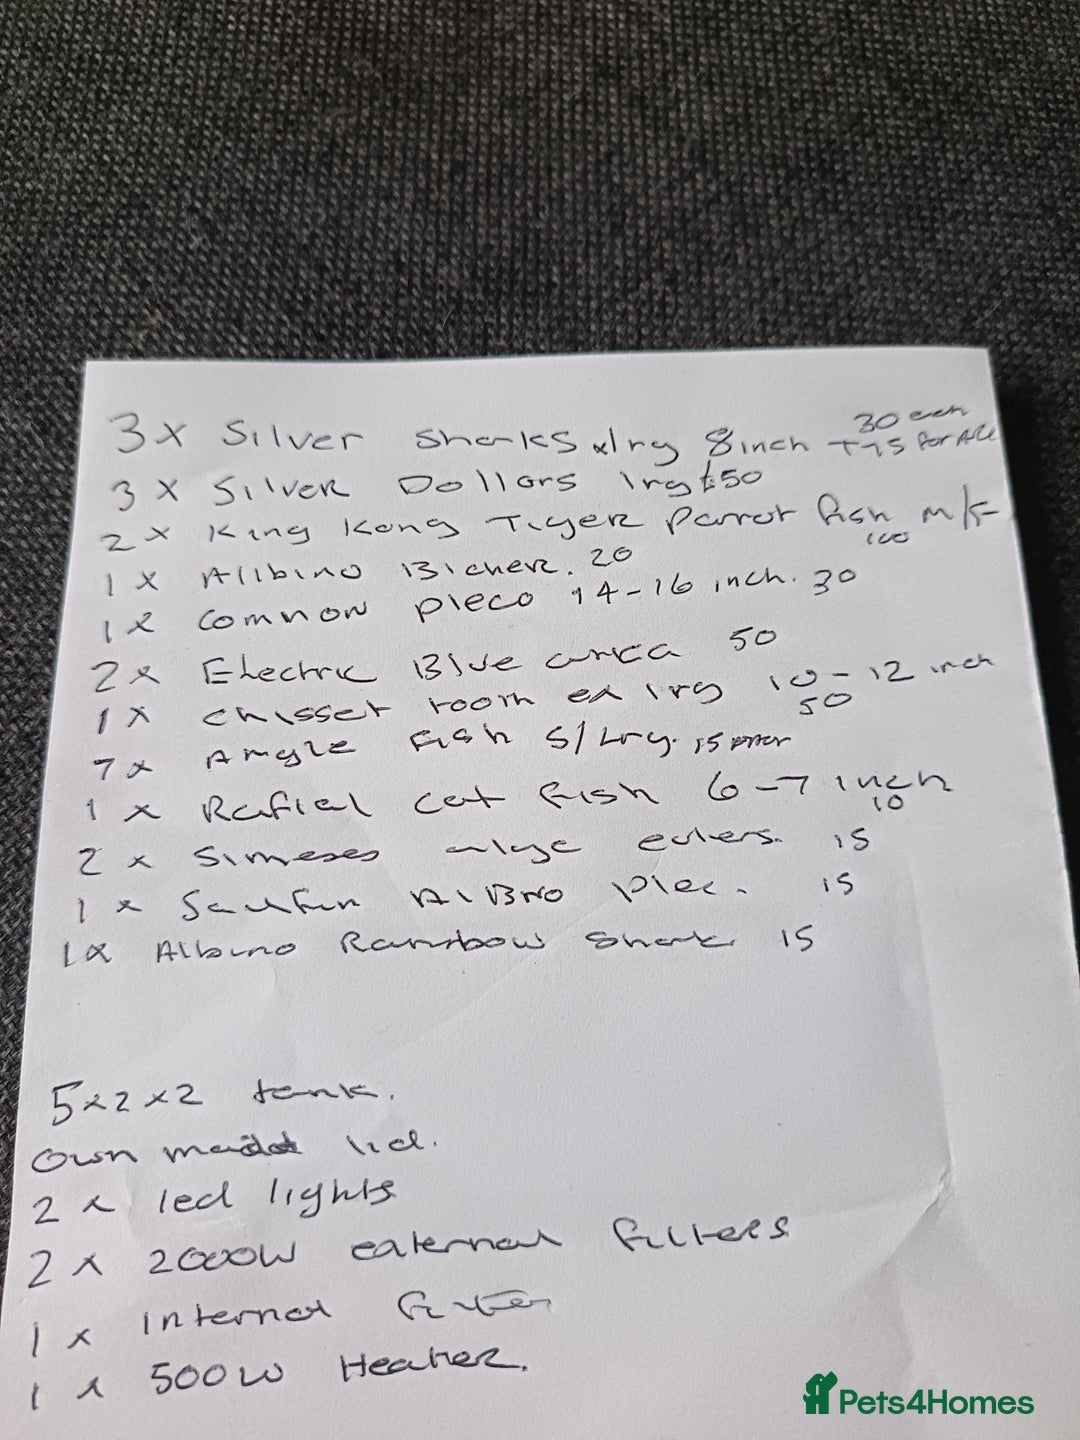 3x Silver Sharks xlrg 8 inch 30 each 75 for ALL
3 x Silver Dollars lrg £50
2x King Kong Tiger parrot fish m/f 100
1 x Allbino Bicher. 20
1x Common pleco 14-16 inch. 30
2x Electric Blue 50
1x chisset tooth ex lrg 10-12 inch 50
7x Angle fish S/Lrg. 15
1x Rafial cat fish 6-7 inch 10
2x Simeses alge eaters. 15
1x Sailfin AlBno plec. 15
1x Albino Rainbow Shark 15
5x2x2 tank.
Own lid.
2 x led lights
2 x 2000W external filters
1 x internal filter
1 x 500W Heater.
Pets4Homes